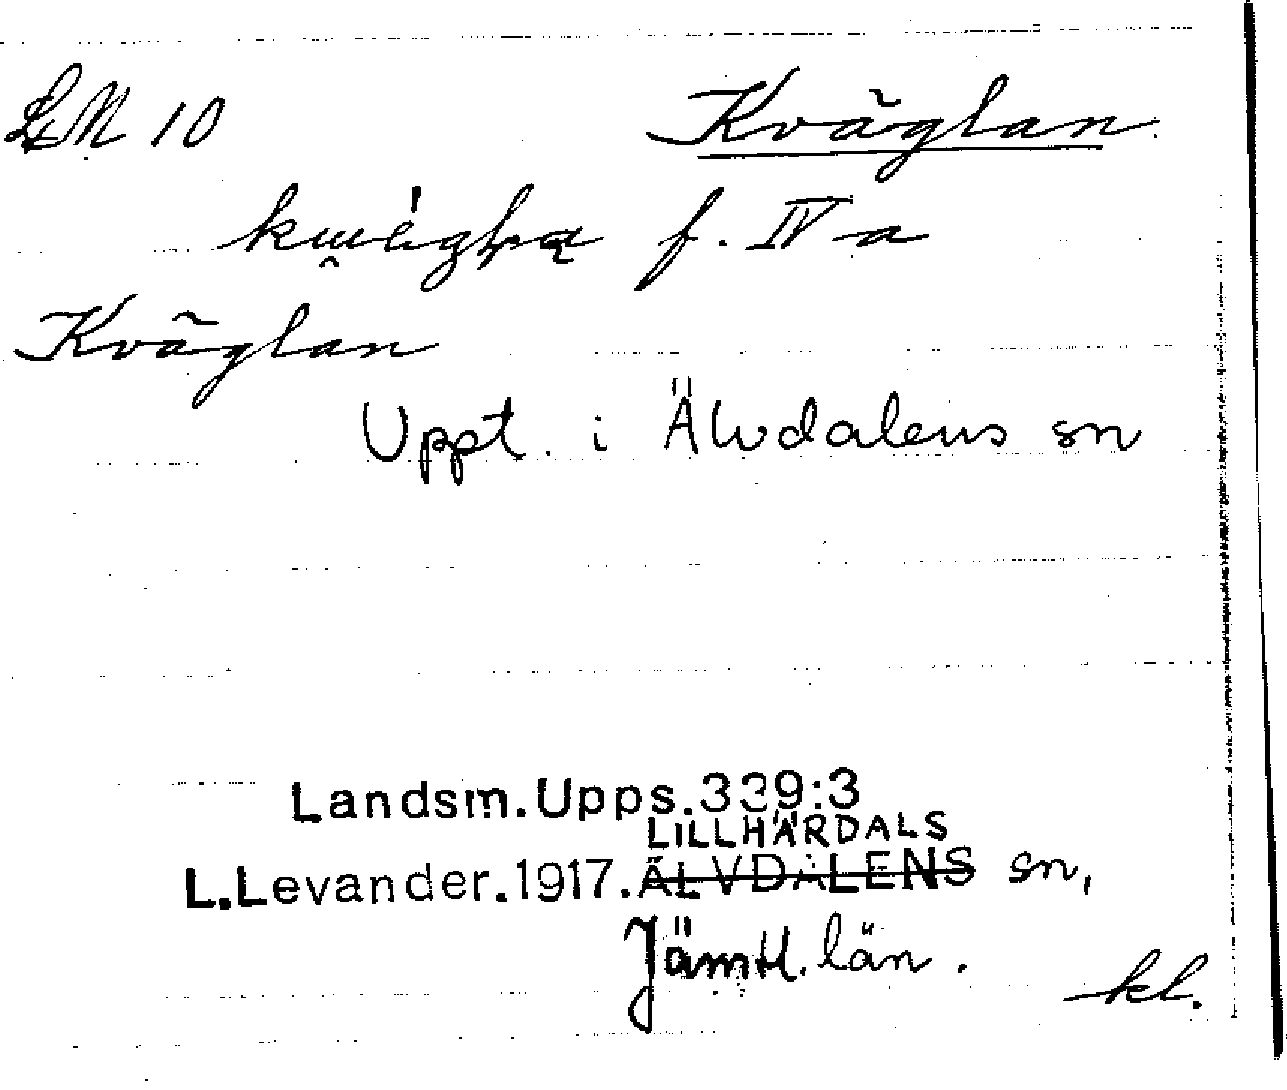 LM 10 Kväglan
f. IV a
Kväglan
Uppt. i Älvdalens sn
Landsm.Upps.339:3
LILLHÄRDALS
L.Levander.1917.ÄLVDALENS sn,
Jämtl. län.
kl.